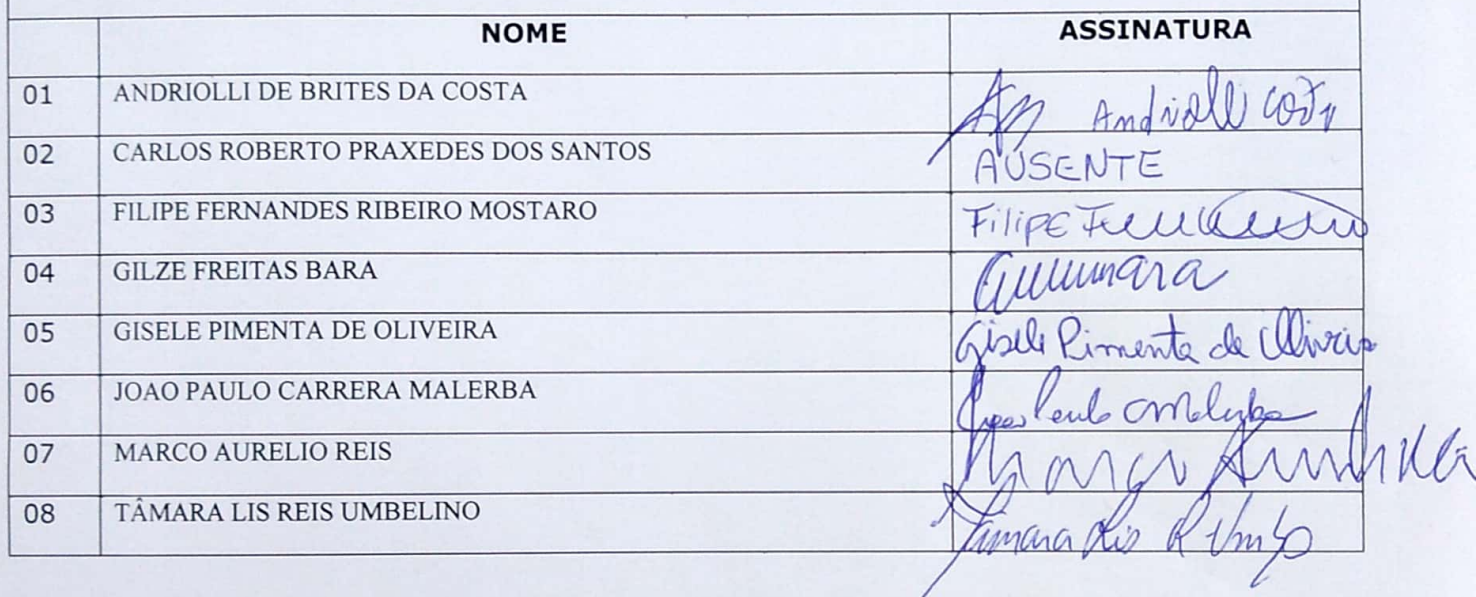 NOME ASSINATURA
01 ANDRIOLLI DE BRITES DA COSTA Andriolli Costa
02 CARLOS ROBERTO PRAXEDES DOS SANTOS AUSENTE
03 FILIPE FERNANDES RIBEIRO MOSTARO Filipe
04 GILZE FREITAS BARA
05 GISELE PIMENTA DE OLIVEIRA Gisele Pimenta de Oliveira
06 JOAO PAULO CARRERA MALERBA
07 MARCO AURELIO REIS Marco
08 TÂMARA LIS REIS UMBELINO Tâmara Lis R